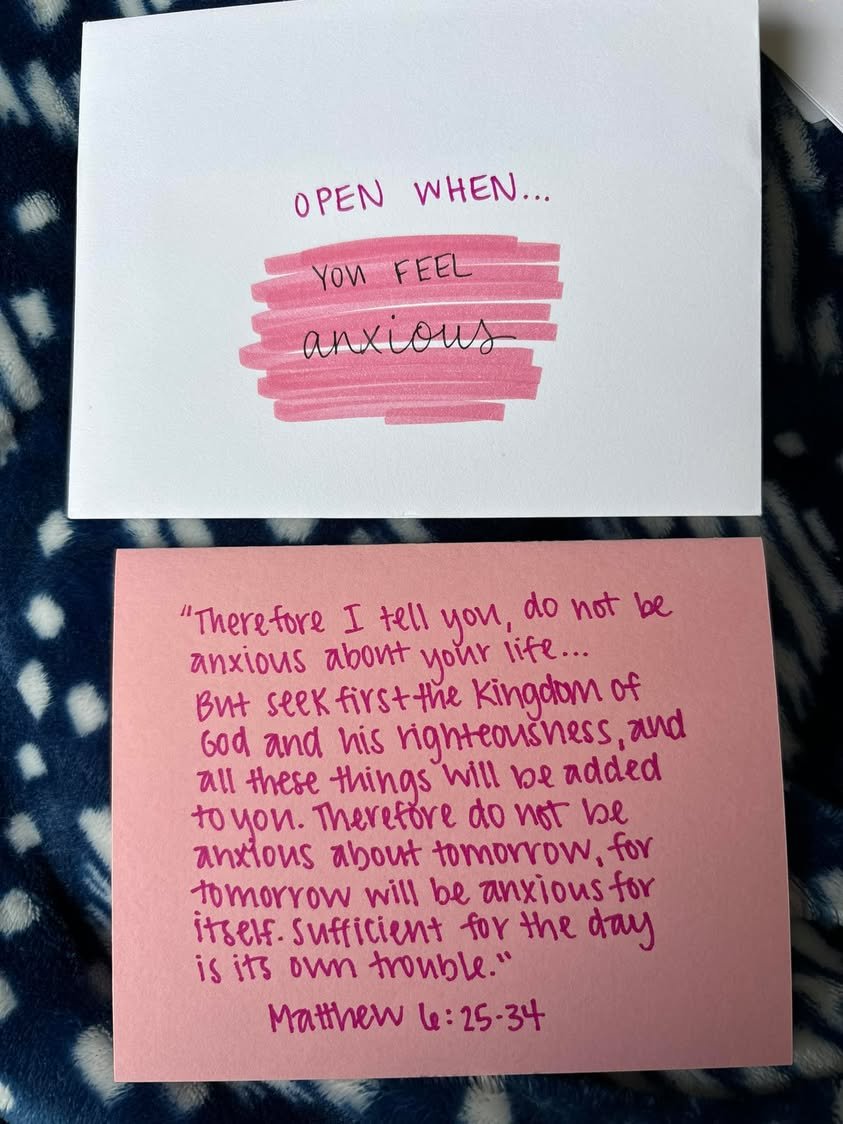 OPEN WHEN...
YOU FEEL
anxious
"Therefore I tell you, do not be
anxious about your life...
But seek first the Kingdom of
God and his righteousness, and
all these things will be added
to you. Therefore do not be
anxious about tomorrow, for
tomorrow will be anxious for
itself. Sufficient for the day
is its own trouble."
Matthew 6:25-34